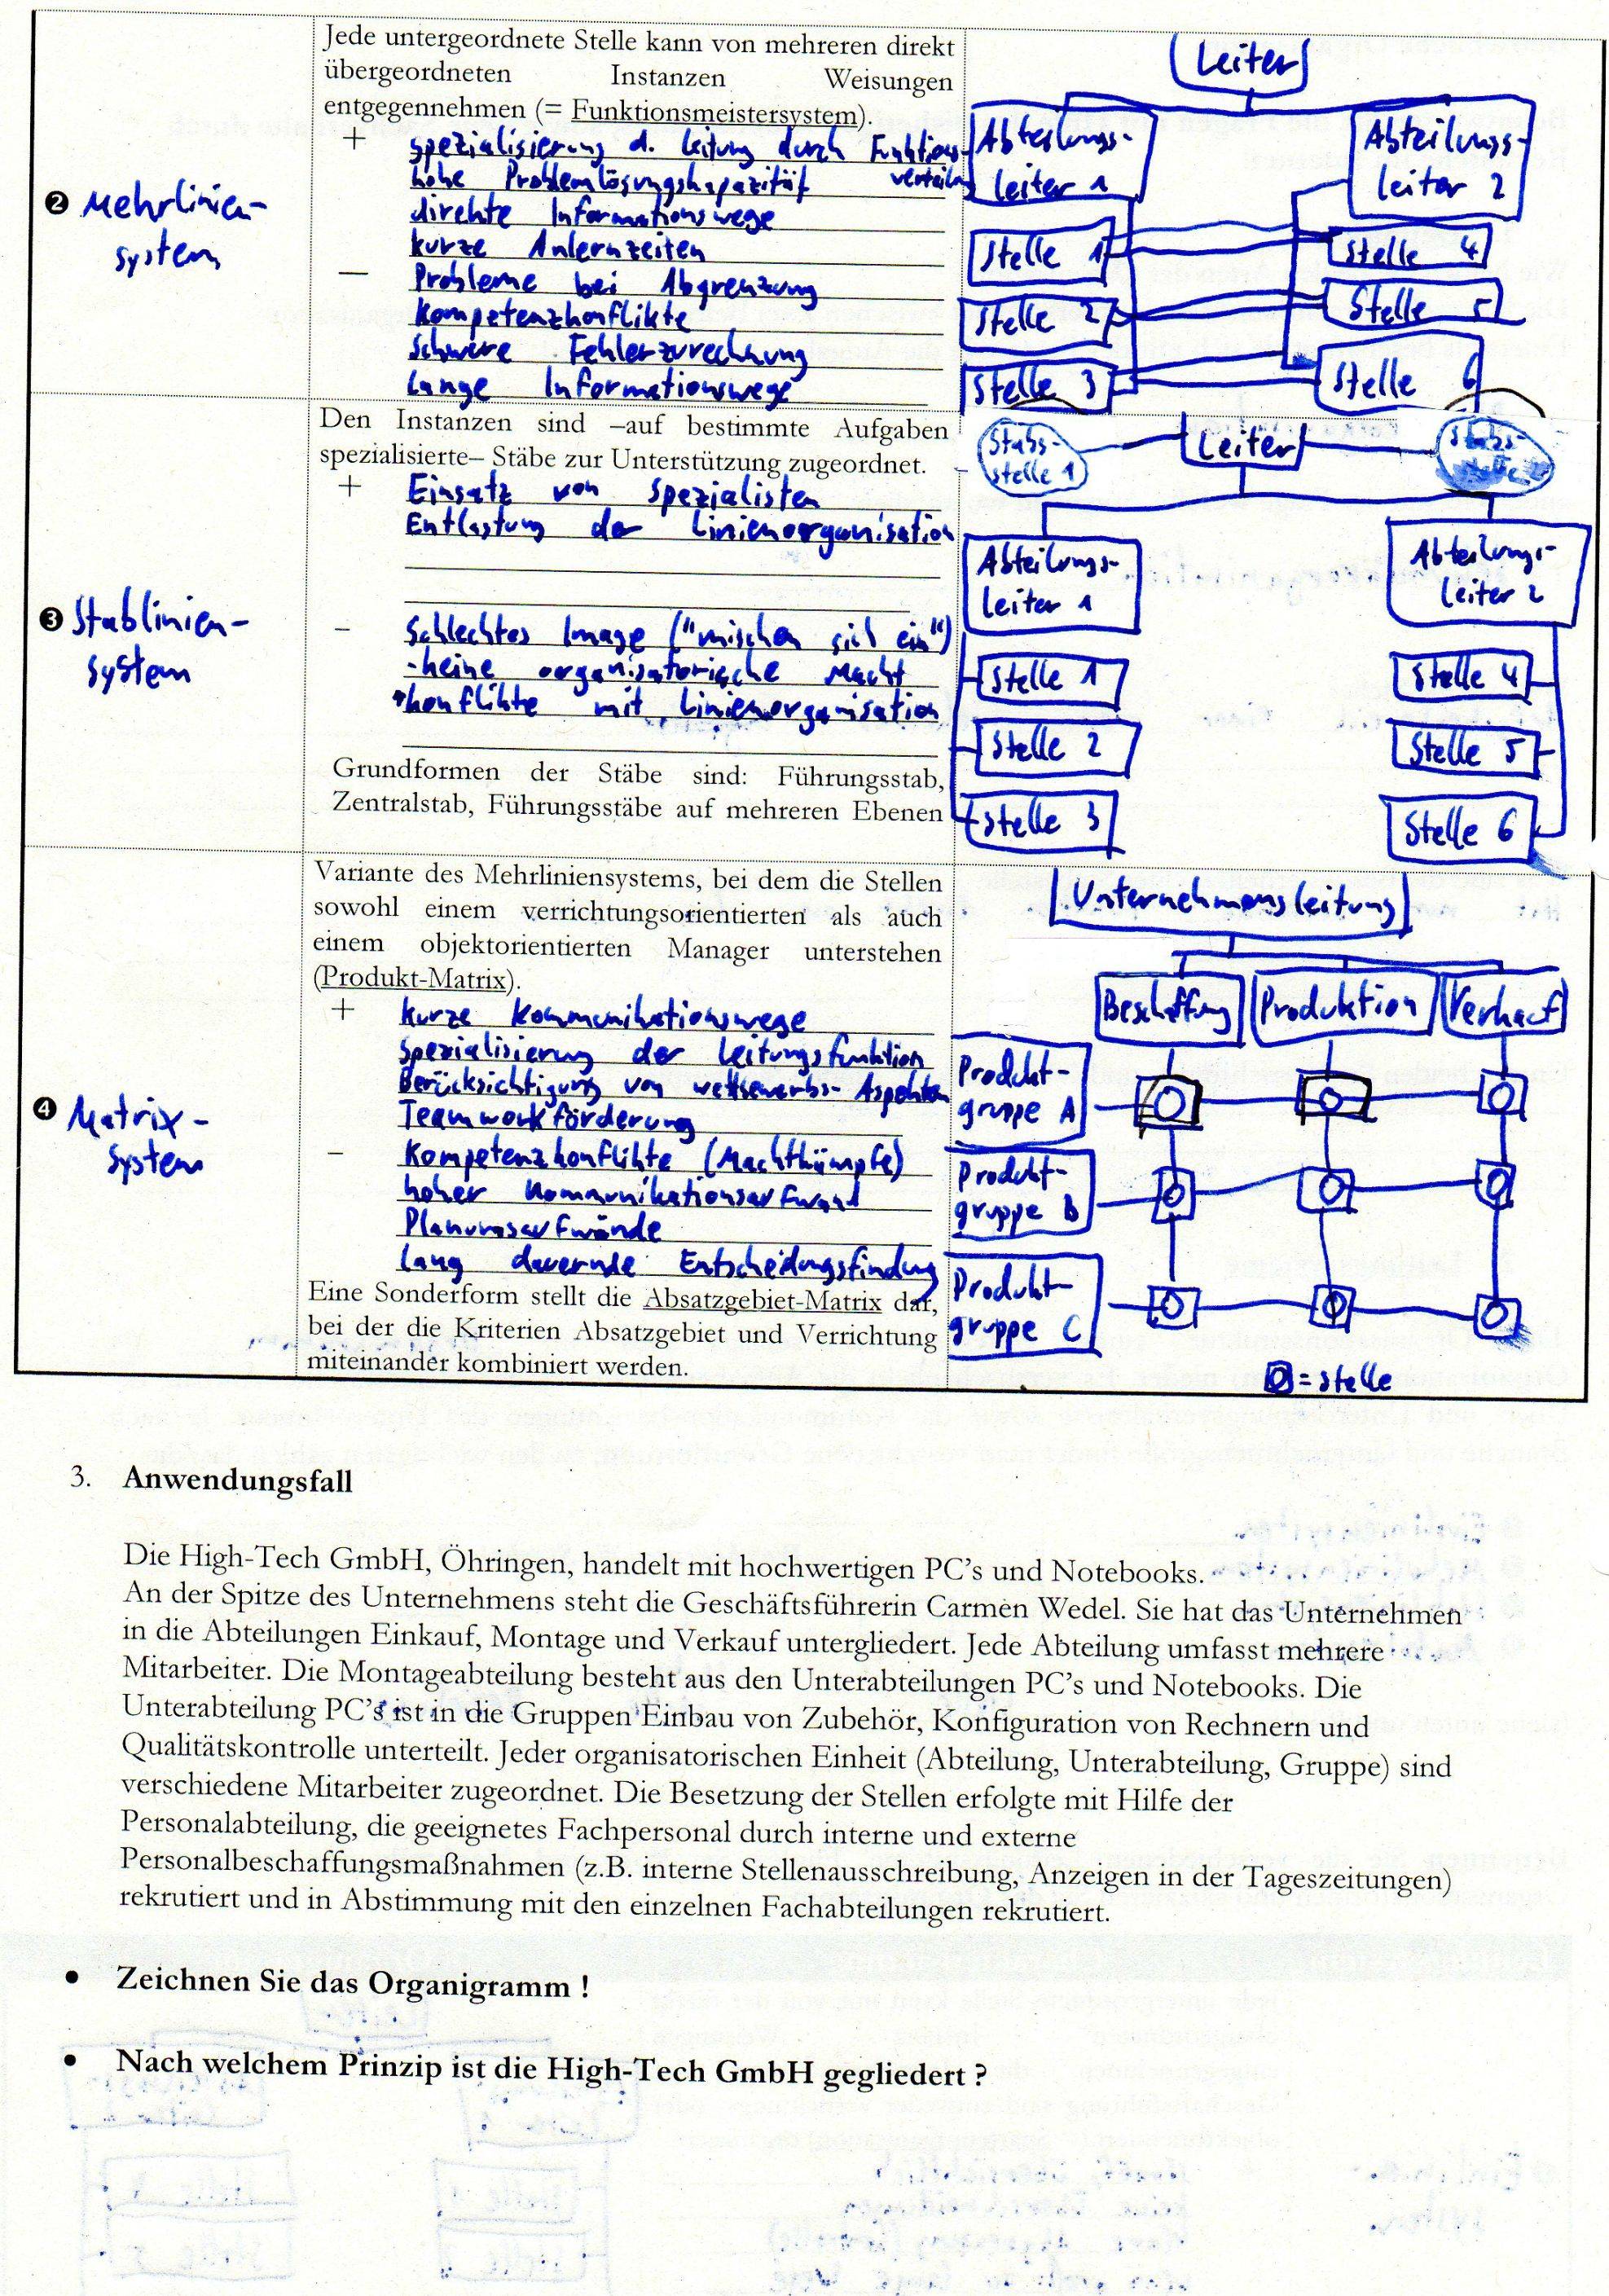 ❷ Mehrlinien-
system
Jede untergeordnete Stelle kann von mehreren direkt
übergeordneten Instanzen Weisungen
entgegennehmen (= Funktionsmeistersystem).
+ spezialisierung d. Leitung durch Funktions-
verteilung
hohe Problemlösungskapazität
direkte Informationswege
kurze Anlernzeiten
— Probleme bei Abgrenzung
Kompetenzkonflikte
schwere Fehlerzurechnung
Lange Informationswege
Leiter
Abteilungs-
leiter 1
Abteilungs-
leiter 2
Stelle 1
Stelle 4
Stelle 2
Stelle 5
Stelle 3
Stelle 6
❸ Stablinien-
system
Den Instanzen sind –auf bestimmte Aufgaben
spezialisierte– Stäbe zur Unterstützung zugeordnet.
+ Einsatz von Spezialisten
Entlastung der Linienorganisation
- Schlechtes Image ("mischen sich ein")
-keine organisatorische Macht
konflikte mit Linienorganisation
Grundformen der Stäbe sind: Führungsstab,
Zentralstab, Führungsstäbe auf mehreren Ebenen
Stabs-
stelle 1
Leiter
Stabs-
stelle
Abteilungs-
leiter 1
Abteilungs-
leiter 2
Stelle 1
Stelle 4
Stelle 2
Stelle 5
Stelle 3
Stelle 6
❹ Matrix-
system
Variante des Mehrliniensystems, bei dem die Stellen
sowohl einem verrichtungsorientierten als auch
einem objektorientierten Manager unterstehen
(Produkt-Matrix).
+ kurze Kommunikationswege
spezialisierung der Leitungsfunktion
Berücksichtigung von wettbewerbs- Aspekten
Teamworkförderung
- Kompetenzkonflikte (Machtkämpfe)
hoher Kommunikationsaufwand
Planungsaufwände
lang dauernde Entscheidungsfindung
Eine Sonderform stellt die Absatzgebiet-Matrix dar,
bei der die Kriterien Absatzgebiet und Verrichtung
miteinander kombiniert werden.
Unternehmensleitung
Beschaffung Produktion Verkauf
Produkt-
gruppe A
Produkt-
gruppe B
Produkt-
gruppe C
= Stelle
3. Anwendungsfall
Die High-Tech GmbH, Öhringen, handelt mit hochwertigen PC's und Notebooks.
An der Spitze des Unternehmens steht die Geschäftsführerin Carmen Wedel. Sie hat das Unternehmen
in die Abteilungen Einkauf, Montage und Verkauf untergliedert. Jede Abteilung umfasst mehrere
Mitarbeiter. Die Montageabteilung besteht aus den Unterabteilungen PC's und Notebooks. Die
Unterabteilung PC's ist in die Gruppen Einbau von Zubehör, Konfiguration von Rechnern und
Qualitätskontrolle unterteilt. Jeder organisatorischen Einheit (Abteilung, Unterabteilung, Gruppe) sind
verschiedene Mitarbeiter zugeordnet. Die Besetzung der Stellen erfolgte mit Hilfe der
Personalabteilung, die geeignetes Fachpersonal durch interne und externe
Personalbeschaffungsmaßnahmen (z.B. interne Stellenausschreibung, Anzeigen in der Tageszeitungen)
rekrutiert und in Abstimmung mit den einzelnen Fachabteilungen rekrutiert.
• Zeichnen Sie das Organigramm !
• Nach welchem Prinzip ist die High-Tech GmbH gegliedert ?